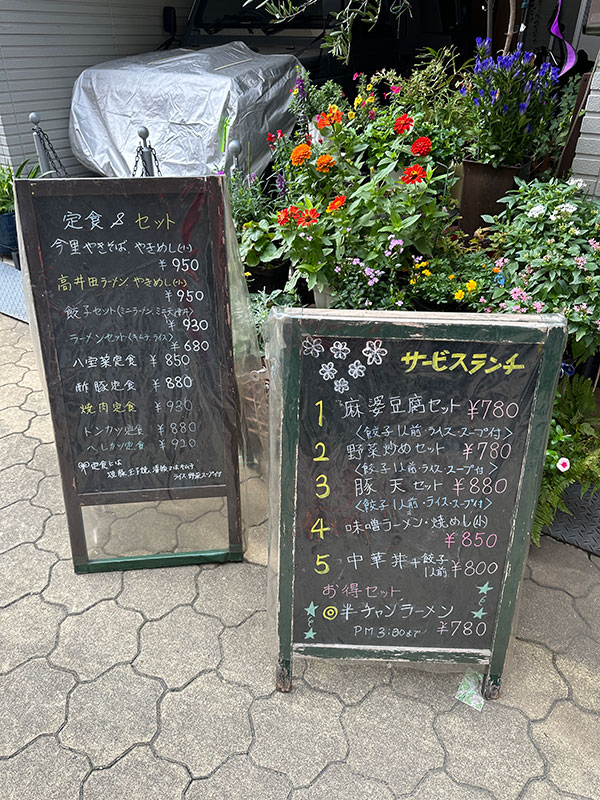 定食&セット
今里やきそば、やきめし(小)
¥950
高井田ラーメン、やきめし(小)
¥950
餃子セット(ミニラーメン、ミニ天津丼)
¥930
ラーメンセット(キムチ、ライス)
¥680
八宝菜定食 ¥850
酢豚定食 ¥880
焼肉定食 ¥930
トンカツ定食 ¥880
ヘレカツ定食 ¥920
定食とは
ライス 野菜スープ付
サービスランチ
1 麻婆豆腐セット ¥780
〈餃子1人前・ライス・スープ付〉
2 野菜炒めセット ¥780
〈餃子1人前・ライス・スープ付〉
3 豚天セット ¥880
〈餃子1人前・ライス・スープ付〉
4 味噌ラーメン・焼めし(小)
¥850
5 中華丼+餃子1人前 ¥800
お得セット
◎半チャンラーメン
PM3:30まで ¥780